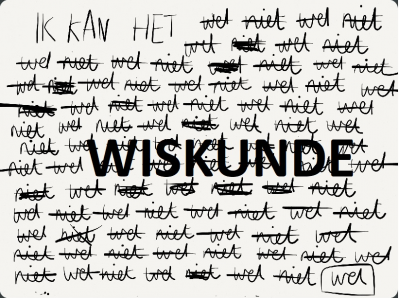 IK KAN HET wel niet wel niet
wel niet wel niet
wel niet wel niet niet wel niet
wel niet wel niet wel niet wel niet wel
niet wel niet wel niet wel niet wel
niet wel niet wel niet wel niet wel niet
niet wel niet wel niet wel niet
niet wel WISKUNDE wel
niet wel niet wel niet wel niet
wel niet wel niet wel niet wel niet
wel niet wel niet wel niet wel
niet wel niet wel niet wel niet wel
niet wel niet wel niet wel niet wel